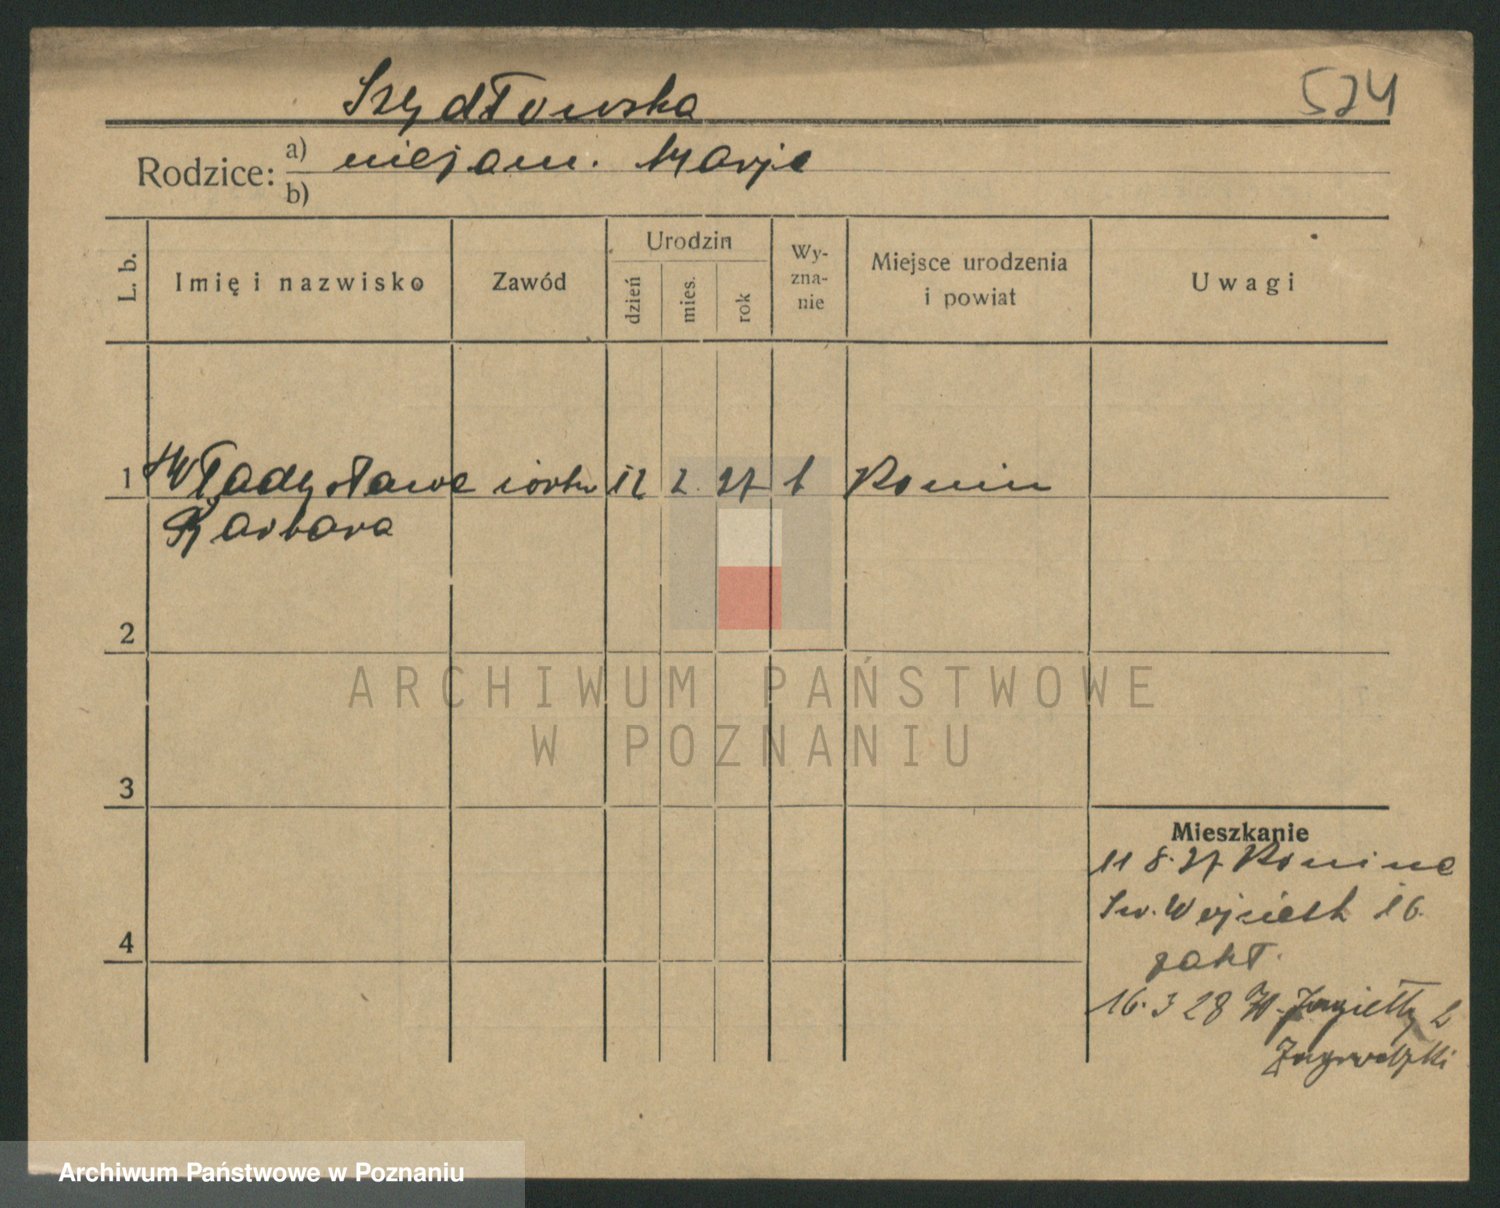 Szydłowska
524
Rodzice: a) niezam. Marja
b)
L. b.
Imię i nazwisko
Zawód
Urodzin
dzień
mies.
rok
Wy-
zna-
nie
Miejsce urodzenia
i powiat
Uwagi
1 Władysława córka 12 2 27 Konin
Barbara
2
3
4
ARCHIWUM PAŃSTWOWE
W POZNANIU
Mieszkanie
11 8. 27 Konina
Św. Wojciech 16
16. 3 28 Jagiełły 2
Archiwum Państwowe w Poznaniu